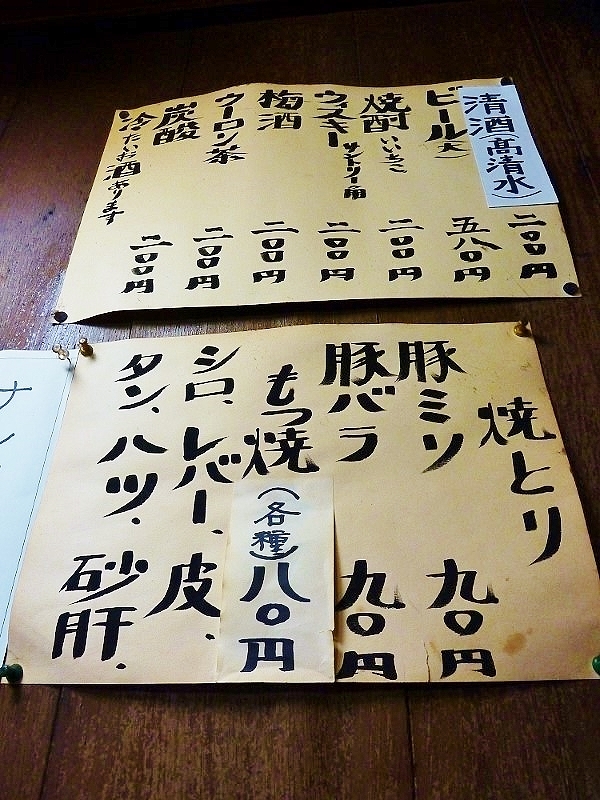 清酒(高清水) 二〇〇円
ビール(大) 五八〇円
焼酎いいちこ 二〇〇円
ウィスキーサントリー角 二〇〇円
梅酒 二〇〇円
ウーロン茶 二〇〇円
炭酸 二〇〇円
冷たいお酒あります
焼とり
豚ミソ 九〇円
豚バラ 九〇円
もつ焼(各種)八〇円
シロ、レバー、皮、
タン、ハツ、砂肝、